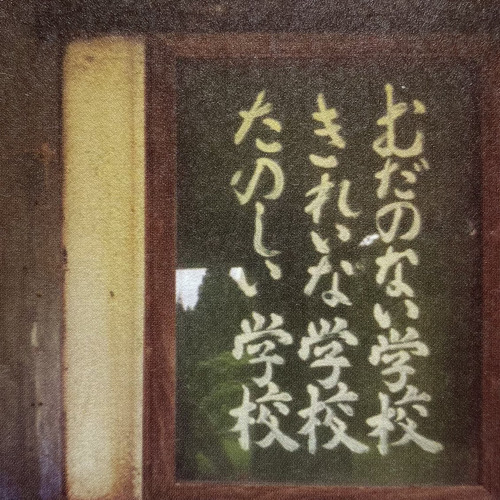 むだのない学校
きれいな学校
たのしい学校